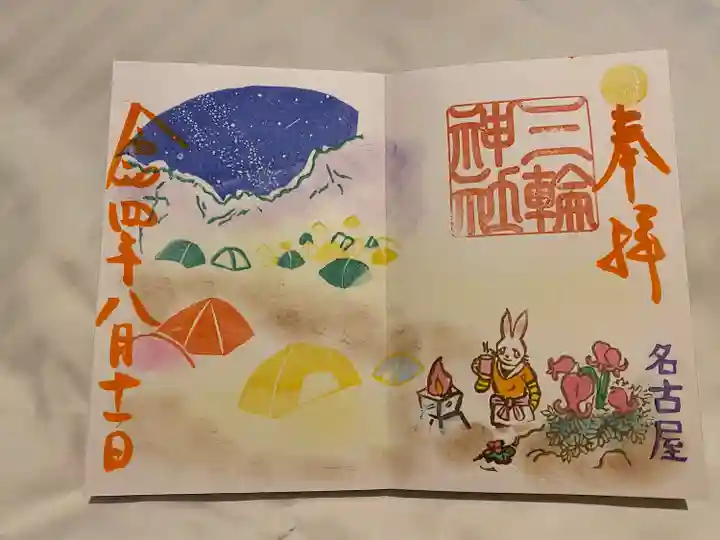 奉拝
三輪
神社
名古屋
令和四年八月十一日